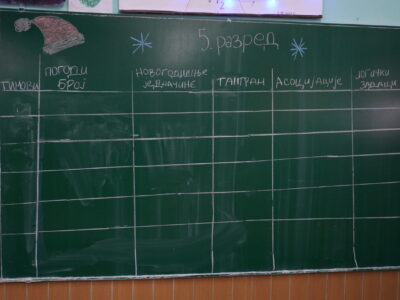 5. разред
ТИМОВИ
ПОГОДИ
БРОЈ
НОВОГОДИШЊЕ
ЈЕДНАЧИНЕ
ТАНГРАМ
АСОЦИЈАЦИЈЕ
ЛОГИЧКИ
ЗАДАЦИ